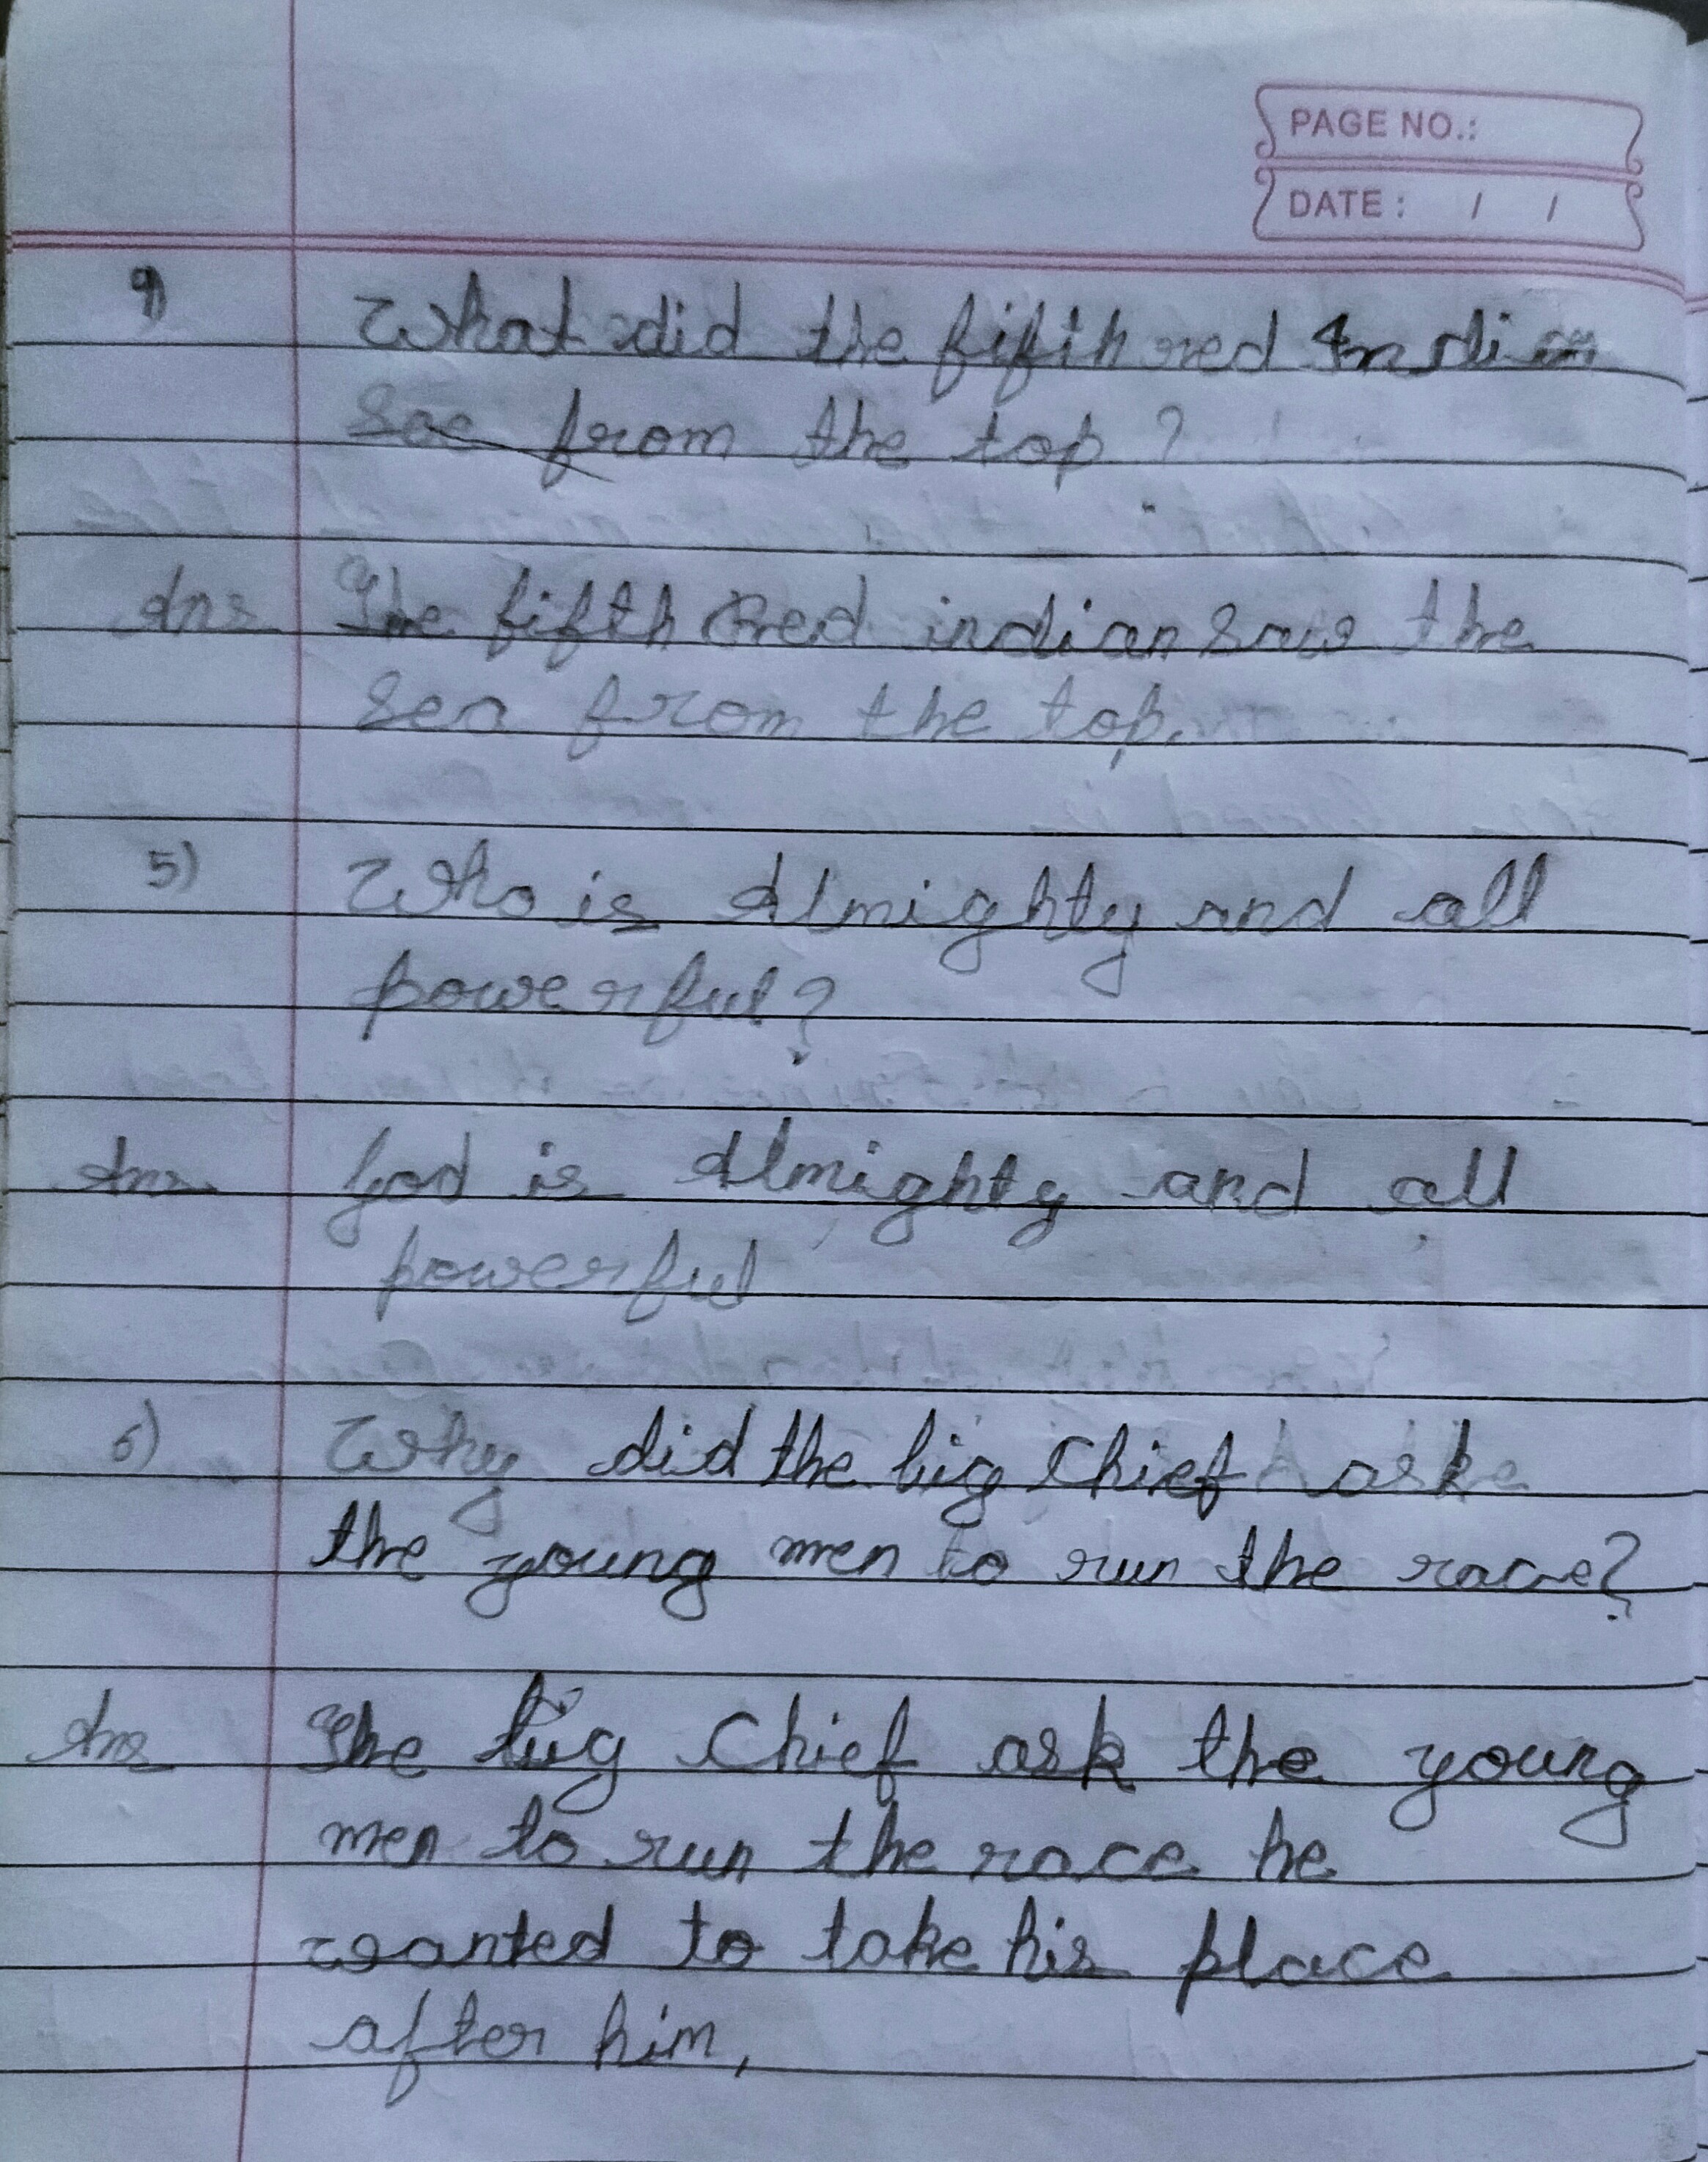 PAGE NO.:
DATE: / /
4) What did the fifth red Indian
See from the top?
Ans The fifth Red indian saw the
Sea from the top.
5) Who is Almighty and all
powerful?
Ans God is Almighty and all
powerful
6) Why did the big Chief aske
the young men to run the race?
Ans The big Chief ask the young
men to run the race he
wanted to take his place
after him,